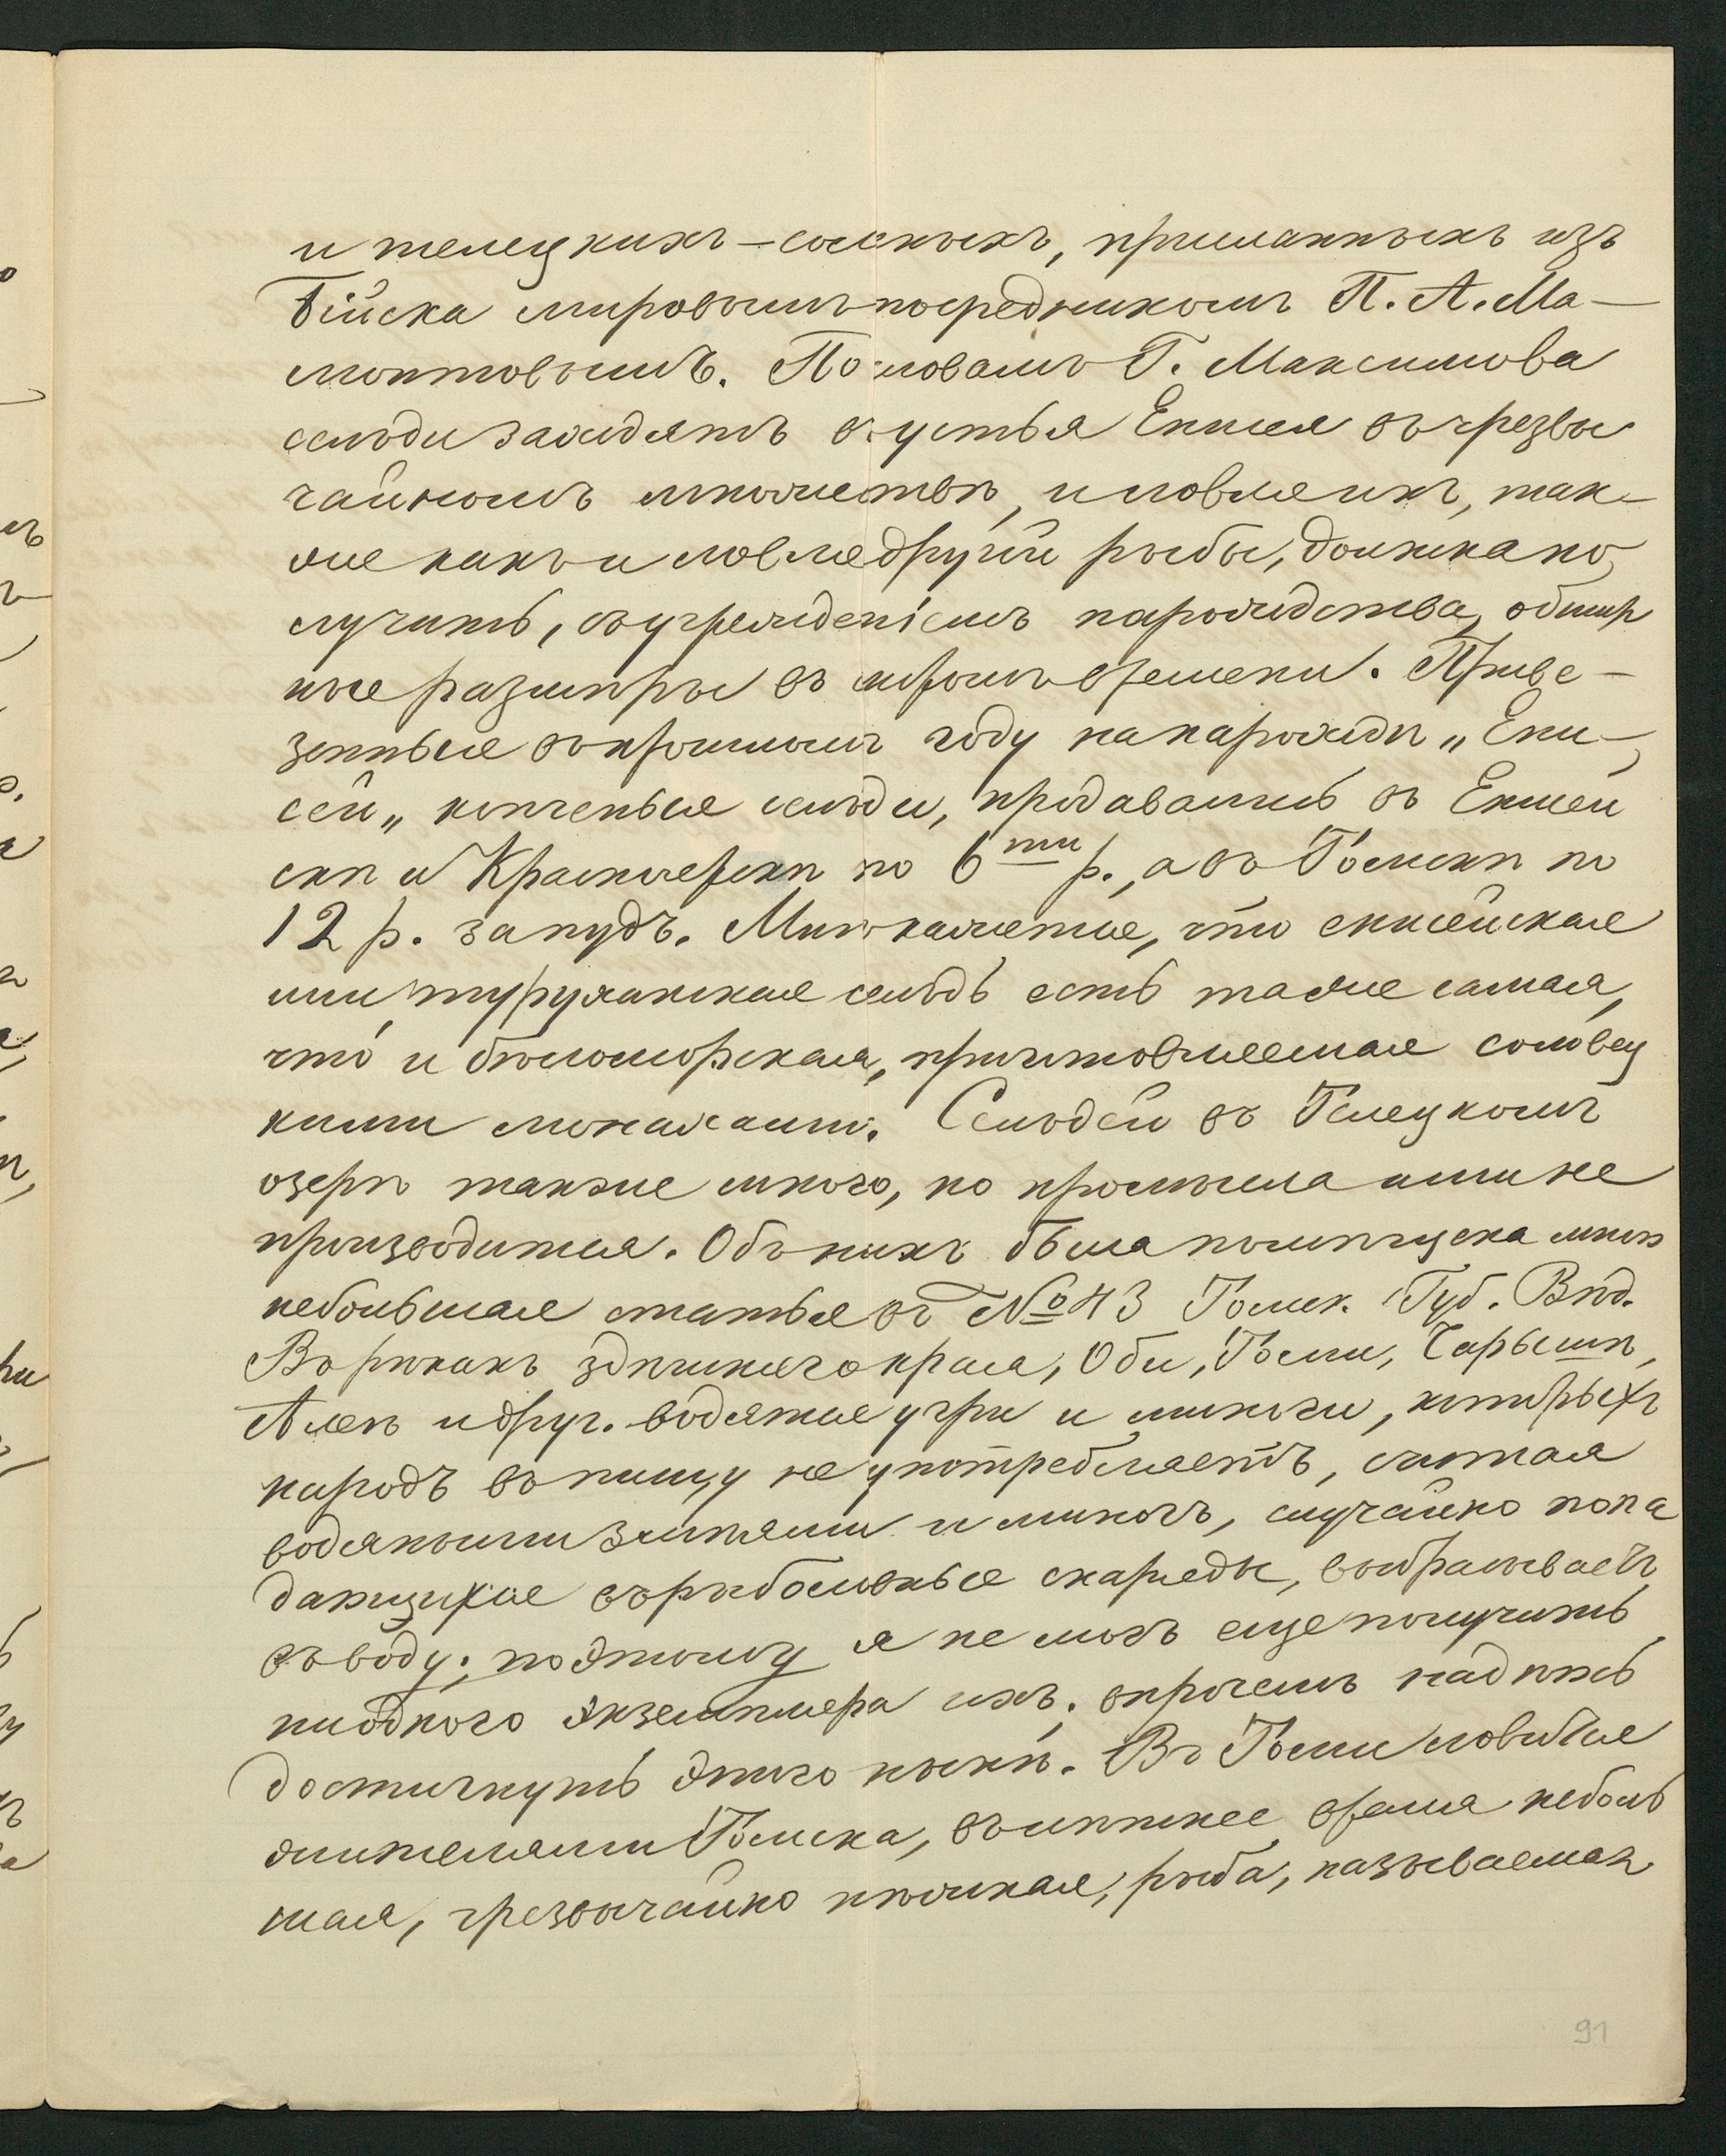 и телецкихъ – соленыхъ, присланныхъ изъ
Бійска мировымъ посредникомъ П. А. Ма-
монтовымъ. По словамъ Г. Максимова
сельди заходятъ въ устья Енисея въ чрезвы
чайномъ множествѣ, и ловля ихъ, так-
же какъ и ловля другой рыбы, должна по
лучить, съ учрежденіемъ пароходства, обшир
ные размѣры въ скоромъ времени. Приве-
зенныя въ прошломъ году на пароходѣ „Ени-
сей„ копченыя сельди, продавались въ Енисей
скѣ и Красноярскѣ по 6ти р., а въ Томскѣ по
12 р. за пудъ. Мнѣ кажется, что енисейская
или туруханская сельдь есть таже самая,
что и бѣломорская, приготовляемая соловец
кими монахами. Сельдей въ Телецкомъ
озерѣ также много, но промысла ими не
производится. Объ нихъ была помѣщена мною
небольшая статья въ № 43 Томск. Губ. Вѣд.
Въ рѣкахъ здѣшняго края, Оби, Томи, Чарышѣ,
Алеѣ и друг. водятся угри и миноги, которыхъ
народъ въ пищу не употребляетъ, считая
водяными змѣями и миногъ, случайно попа
дающихся въ рыболовные снаряды, выбрасываетъ
въ воду; поэтому я не могъ еще получить
ни одного экземпляра ихъ; впрочемъ надѣюсь
достигнуть этого нынѣ. Въ Томи ловится
жителями Томска, въ лѣтнее время неболь
шая, чрезвычайно нѣжная, рыба, называемая
91